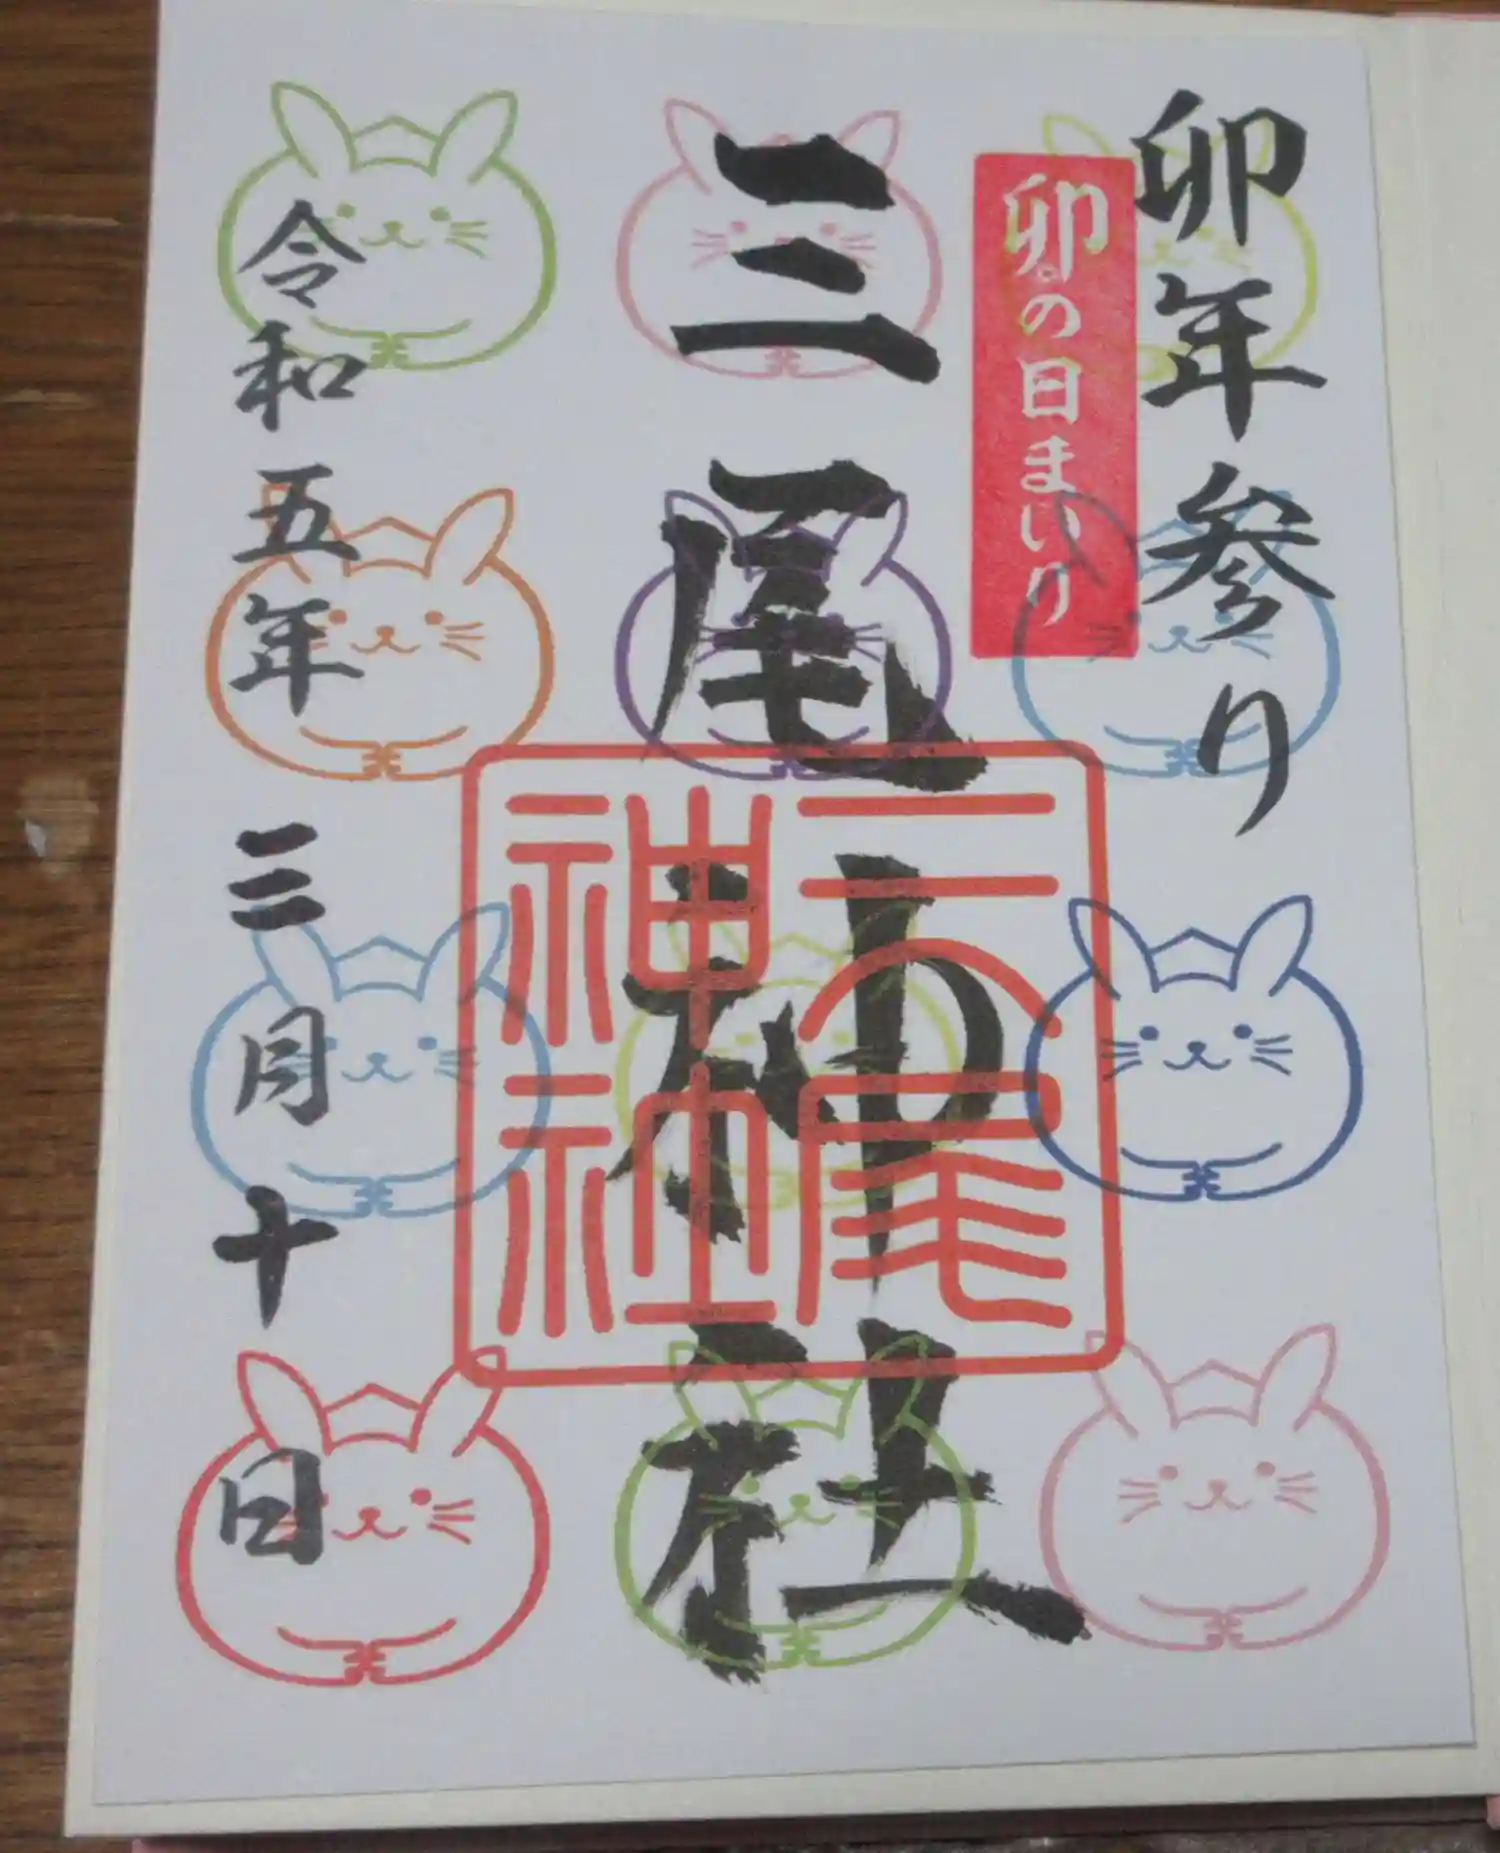 卯年参り
卯の日まいり
三尾神社
三尾
神社
令和五年三月十日